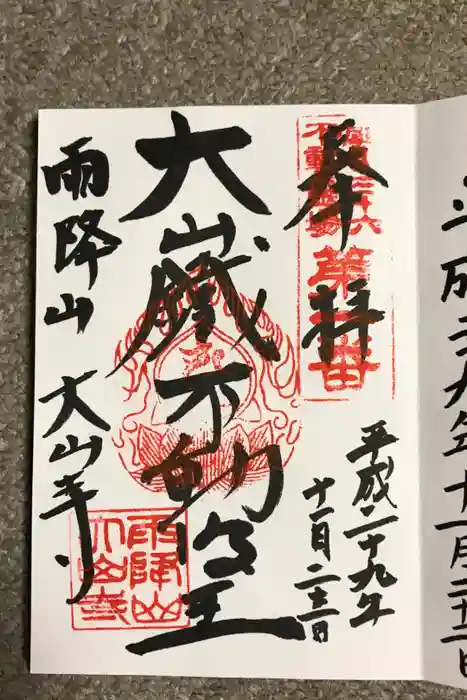 奉拝
関東三十六
不動霊場
第一番
平成二十九年
十一月二十三日
大山鐵不動明王
雨降山 大山寺
雨降山
大山寺